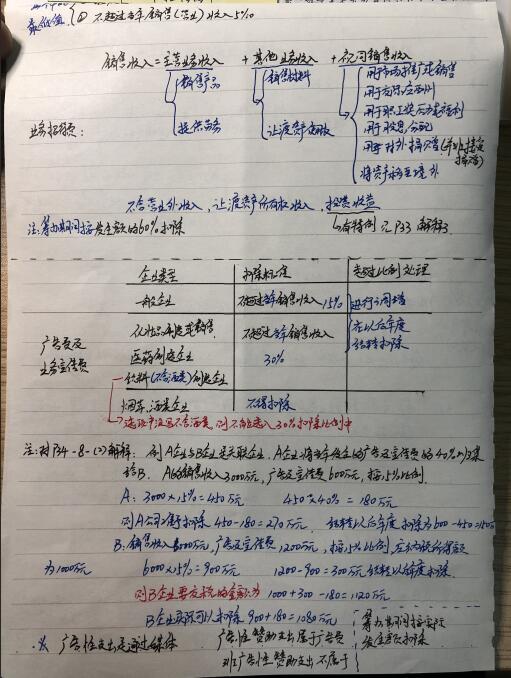 最低值 ② 不超过当年销售(营业)收入5‰
销售收入=主营业务收入 + 其他业务收入 + 视同销售收入
销售产品 销售材料 用于市场推广或销售
用于交际应酬
用于职工奖励或福利
业务招待费: 提供劳务 让渡资产使用权 用于股息分配
用于对外捐赠
将资产移至境外
不含营业外收入,让渡资产所有权收入,投资收益
注:筹办期间按发生额的60%扣除 有特例 见P33 解释3
企业类型 扣除标准 超过比例处理
一般企业 不超过当年销售收入15% 进行纳调增
化妆品制造或销售 不超过当年销售收入 在以后年度
广告费及 医药制造企业 30% 结转扣除
业务宣传费
饮料(不含酒类)制造企业
烟草、酒类企业 不得扣除
选项中没写不含酒类,则不能选入30%扣除比例中
注:对P34-8-(2)解释: 例 A企业与B企业是关联企业,A企业将当年发生的广告及宣传费的40%归集
给B. A的销售收入3000万元,广告及宣传费600万元,按15%比例.
A: 3000×15%=450万元 450×40%=180万元
则A公司可税前扣除 450-180=270万元. 结转以后年度扣除为600-450=150万元
B:销售收入6000万元,广告及宣传费1200万元,按15%比例 应纳税所得额
为1000万元 6000×15%=900万元 1200-900=300万元结转以后年度扣除.
则B企业要交税的金额为 1000+300-180=1120万元
B企业实际可以扣除 900+180=1080万元
※ 广告性支出是通过媒体 广告性赞助支出属于广告费 筹办期间按实际
非广告性赞助支出不属于 发生额扣除